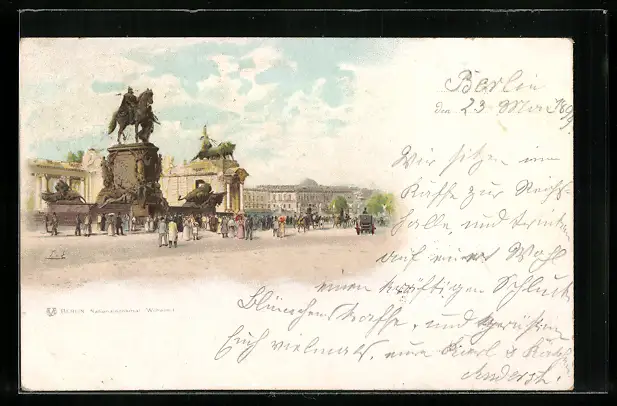 Berlin
den 23 Mai 1899
Wir sitzen im
Kaffe zur Reichs-
halle, und trinken
auf euer Wohl
einen kräftigen Schluck
Blümchenkaffe, und grüßen
Euch vielmals, eure Karl &
BERLIN Nationaldenkmal Wilhelm I